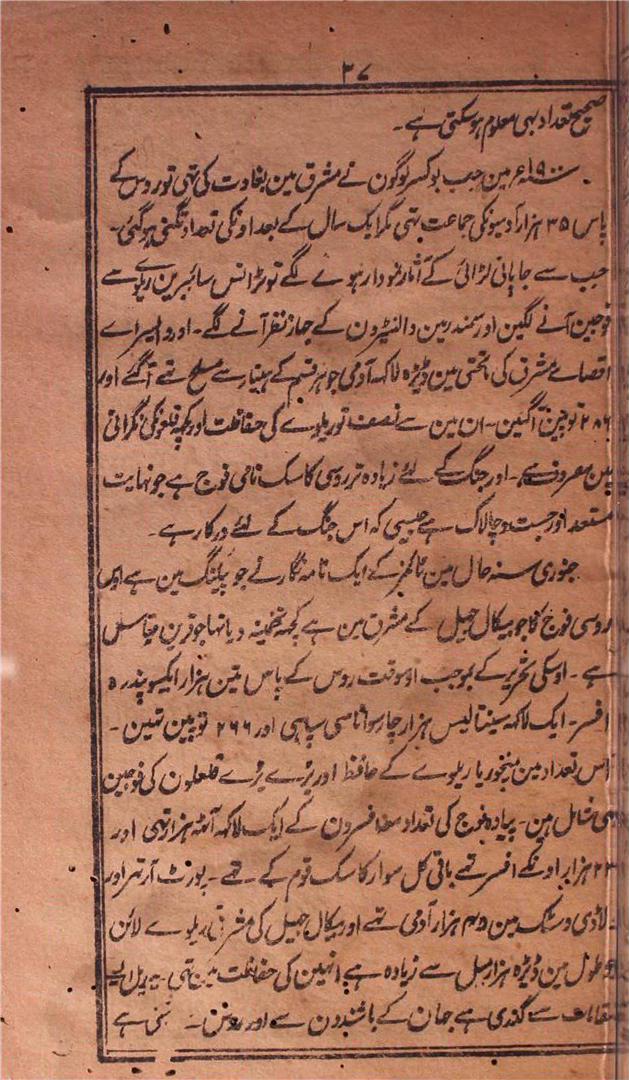 ۳۷
صحیح تعداد بہی معلوم ہو سکتی ہے ۔
سنہ ۱۹۰۰ء مین جب بوکسر لوگون نے مشرق مین بغاوت کی تہی تو روس کے
پاس ۳۵ ہزار آدمیونکی جماعت تہی مگر ایک سال کے بعد اونکی تعداد تگنی ہو گئی ۔
جب سے جاپانی لڑائی کے آثار نمودار ہوے لگے تو ٹرانس سائبرین ریلوے سے
فوجین آنے لگین اور سمندر مین والنٹیرون کے جہاز نظر آنے لگے ۔ اور وایسراے
اقصاے مشرق کی ماتحتی مین ڈیڑہ لاکہ آدمی جو ہر قسم کے ہتیار سے مسلح تہے آ گئے اور
۲۸۶ توپین آگئین ۔ ان مین سے نصف تو ریلوے کی حفاظت اور کچہ قلعونکی نگرانی
مین مصروف ہے ۔ اور جنگ کے لئے زیادہ تر روسی کاسک نامی فوج ہے جو نہایت
مستعد اور چست و چالاک ہے جیسی کہ اس جنگ کے لئے درکار ہے ۔
جنوری سنہ حال مین ٹائمز کے ایک نامہ نگار نے جو پیکنگ مین ہے اوس
روسی فوج کا جو بیکال جہیل کے مشرق مین ہے کچہ تخمینہ دیا تہا جو قرین قیاس
ہے ۔ اوسکی تحریر کے بموجب اوسوقت روس کے پاس تین ہزار ایکسو پندرہ
افسر ۔ ایک لاکہ سینتالیس ہزار چار سو اناسی سپاہی اور ۲۶۶ توپین تہین ۔
اس تعداد مین منچوریا ریلوے کے محافظ اور بڑے بڑے قلعلون کی فوجین
بہی شامل ہین ۔ پیادہ فوج کی تعداد معہ افسرون کے ایک لاکہ آٹہ ہزار تہی اور
۲۳ ہزار اونکے افسر تہے باقی کل سوار کاسک قوم کے تہے ۔ پورٹ آرتہر اور
لاڈی وسٹک مین ۴۵ ہزار آدمی تہے اور بیکال جہیل کی مشرقی ریلوے لائن
جو طول مین ڈیڑہ ہزار میل سے زیادہ ہے انہین کی حفاظت مین تہی ۔ یہ ریل ایسے
مقامات سے گذری ہے جہان کے باشندون سے اور روس ۔ ہے